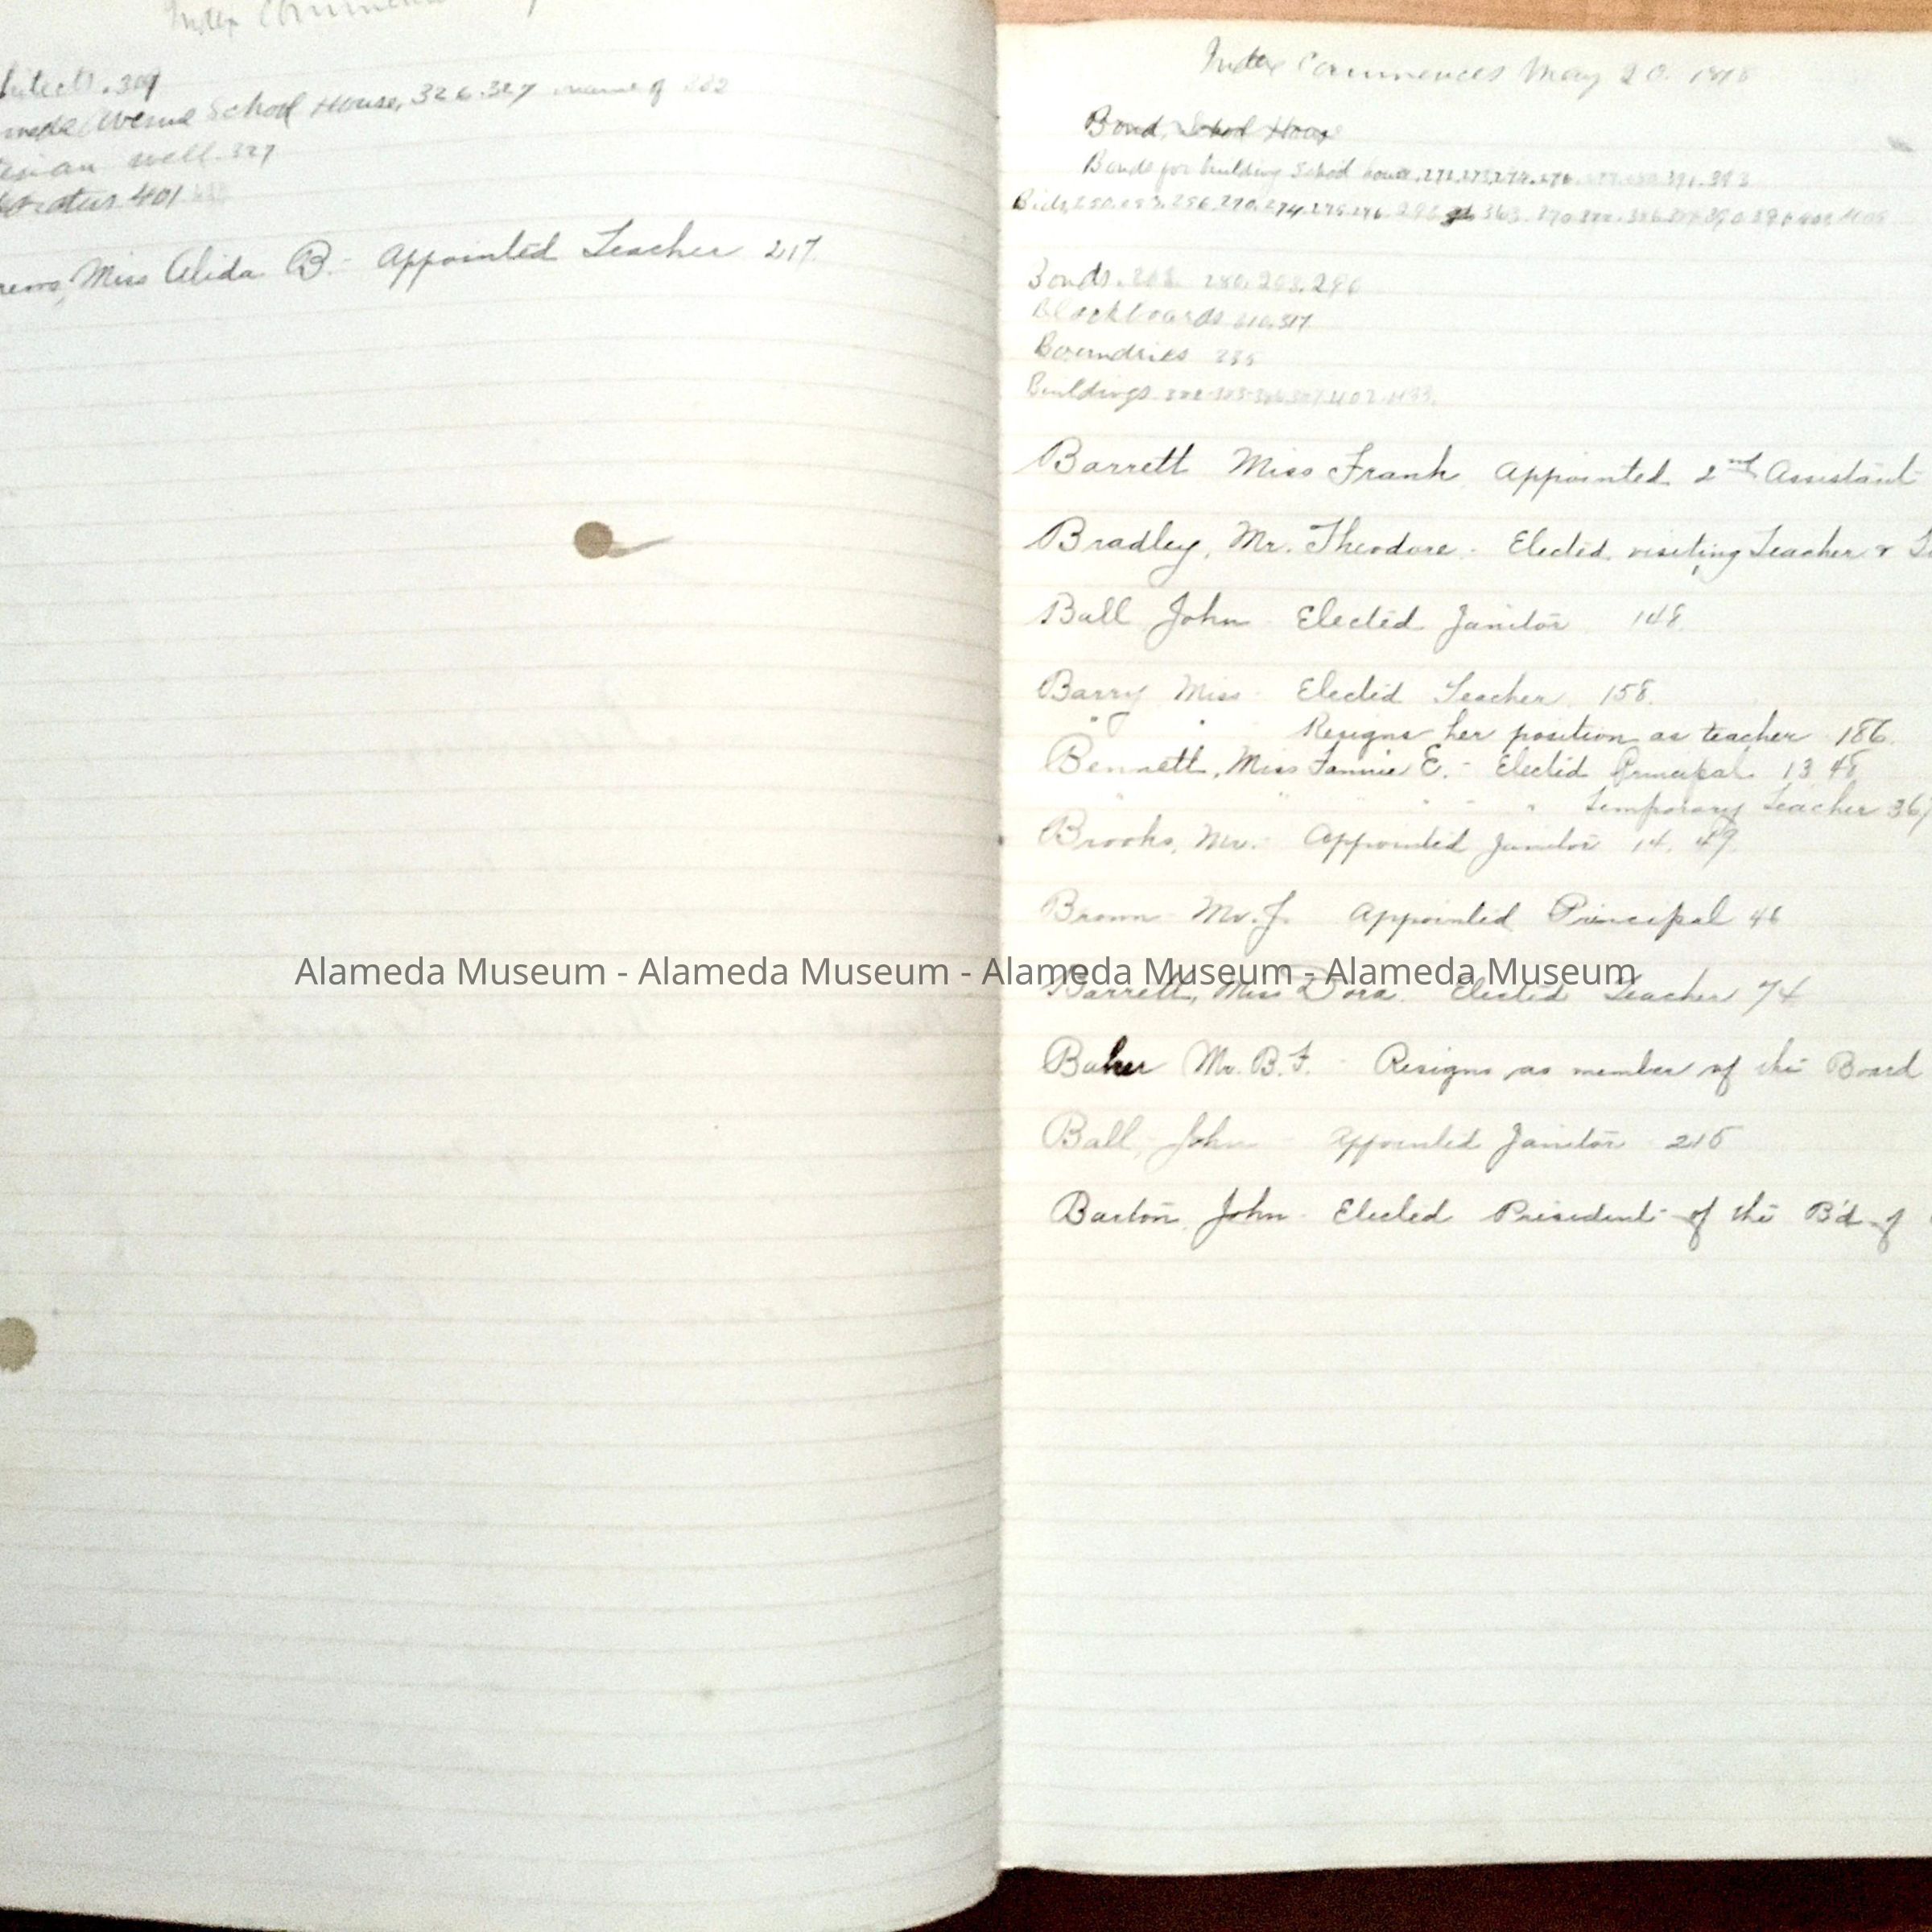 Index
hitects. 309
meda Avenue School House, 326.327 name of 282
esian well. 327
ratus 401
rews, Miss Alida B. - Appointed Teacher 217.
Index Commences May 20. 1878
Bond, School House
Bonds for building School house, 272.273.274.276. 391.393
Bids, 250. 256.270.274.275.276. 363.
Bonds. 280. 296
Blackboards 317
Boundries 285
Buildings 402
Barrett Miss Frank Appointed 2nd Assistant
Bradley, Mr. Theodore - Elected visiting Teacher &
Ball John - Elected Janitor 148.
Barry Miss - Elected Teacher 158.
" " Resigns her position as teacher 186.
Bennett, Miss Fannie E. - Elected Principal 13 48
" " " " temporary Teacher 36
Brooks, Mr. - Appointed Janitor 14. 49.
Brown Mr. J. Appointed Principal 46
Alameda Museum - Alameda Museum - Alameda Museum - Alameda Museum
Barrett, Miss Dora. Elected Teacher 74
Baker Mr. B.F. - Resigns as member of the Board
Ball, John - Appointed Janitor 215
Barton, John - Elected President of the B'd of